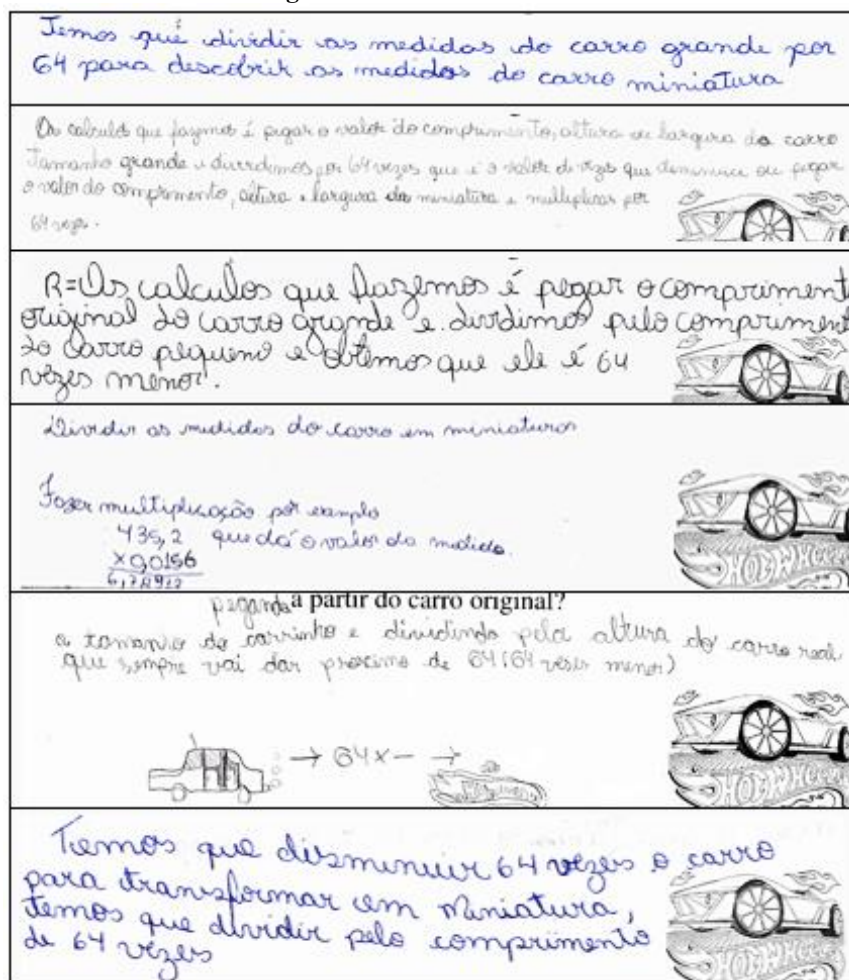 Temos que dividir as medidas do carro grande por
64 para descobrir as medidas do carro miniatura
Os calculos que fazemos é pegar o valor do comprimento, altura ou largura do carro
tamanho grande e dividimos por 64 vezes que é o valor de vezes que diminuice ou pegar
o valor do comprimento, altura e largura da miniatura e multiplicar por
64 vezes.
R= Os calculos que fazemos é pegar o compriment
original do carro grande e dividimos pelo compriment
do carro pequeno e obtemos que ele é 64
vezes menor.
Dividir as medidas do carro em miniaturas
Fazer multiplicação por exemplo
435,2 que dá o valor da medida.
x0,0156
HOT WHEELS
pegando a partir do carro original?
o tamanho do carrinho e dividindo pela altura do carro real,
que sempre vai dar proximo de 64 (64 vesis menor)
→ 64x- →
HOT WHEELS
Temos que disminuir 64 vezes o carro
para transformar em miniatura,
temos que dividir pelo comprimento
de 64 vezes
HOT WHEELS